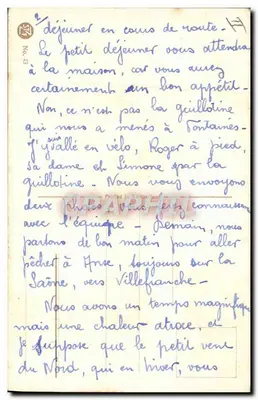 2
déjeuner en cours de route.
Le petit déjeuner vous attendra
à la maison, car vous aurez
certainement un bon appétit.
Non, ce n'est pas la guillotine
qui nous a menés à Fontaines-
j'y suis allé en vélo, Roger à pied,
sa dame et Simone par la
guillotine. Nous vous envoyons
deux pour faire connaissance
avec l'équipe. Demain, nous
partons de bon matin pour aller
pêcher à Anse, toujours sur la
Saône, vers Villefranche.
Nous avons un temps magnifique
mais une chaleur atroce, et
je suppose que le petit vent
du Nord, qui en hiver, vous